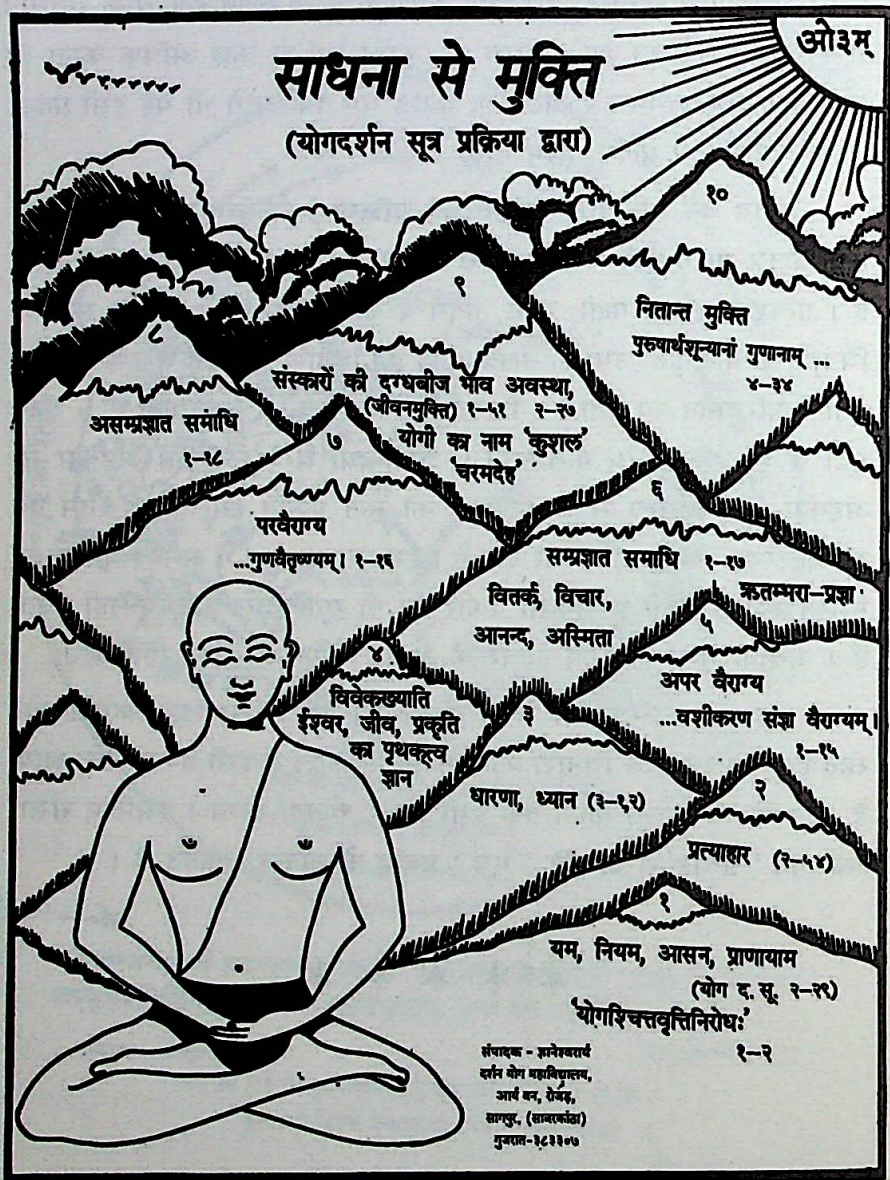 ओ३म्
साधना से मुक्ति
(योगदर्शन सूत्र प्रक्रिया द्वारा)
१०
नितान्त मुक्ति
पुरुषार्थशून्यानां गुणानाम् ...
४-३४
९
संस्कारों की दग्धबीज भाव अवस्था,
(जीवनमुक्ति) १-५१ २-२७
योगी का नाम 'कुशल'
'चरमदेह'
८
असम्प्रज्ञात समाधि
१-१८
७
परवैराग्य
...गुणवैतृष्ण्यम्। १-१६
६
सम्प्रज्ञात समाधि १-१७
वितर्क, विचार, ऋतम्भरा-प्रज्ञा
आनन्द, अस्मिता
५
अपर वैराग्य
...वशीकरण संज्ञा वैराग्यम्।
१-१५
४
विवेकख्याति
ईश्वर, जीव, प्रकृति
का पृथक्त्व
ज्ञान
३
धारणा, ध्यान (३-१,२)
२
प्रत्याहार (२-५४)
१
यम, नियम, आसन, प्राणायाम
(योग द. सू. २-२९)
'योगश्चित्तवृत्तिनिरोधः'
१-२
संपादक - ज्ञानेश्वरार्य
दर्शन योग महाविद्यालय,
आर्य वन, रोजड़,
सागपुर, (साबरकांठा)
गुजरात-३८३३०७